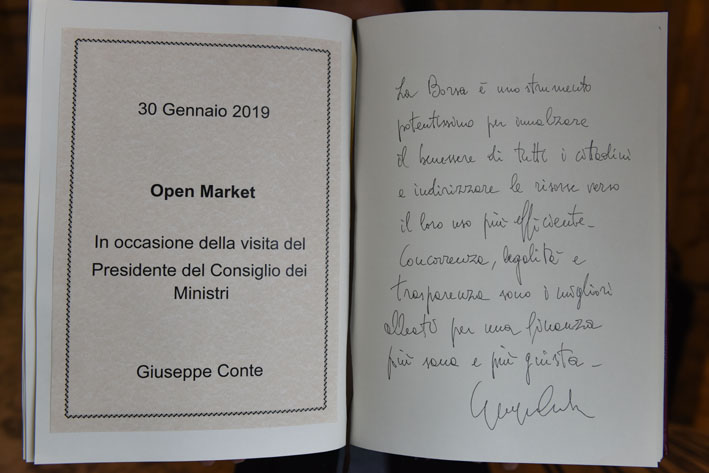 30 Gennaio 2019
Open Market
In occasione della visita del
Presidente del Consiglio dei
Ministri
Giuseppe Conte
La Borsa è uno strumento
potentissimo per innalzare
il benessere di tutti i cittadini
e indirizzare le risorse verso
il loro uso più efficiente.
Concorrenza, legalità e
trasparenza sono i migliori
alleati per una finanza
più sana e più giusta.